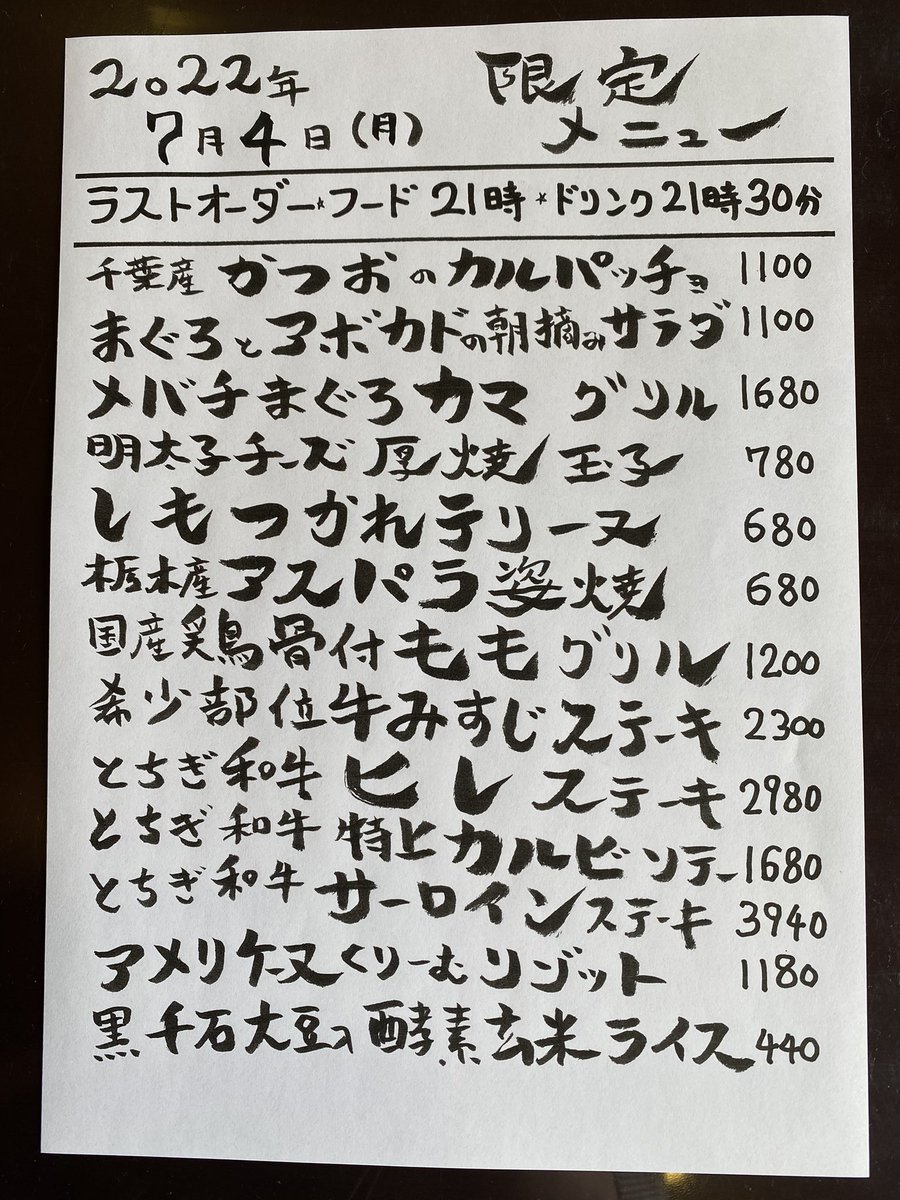 2022年
7月4日(月)
限定
メニュー
ラストオーダー*フード 21時*ドリンク21時30分
千葉産 かつおのカルパッチョ 1100
まぐろとアボカドの朝摘みサラダ 1100
メバチまぐろカマ グリル 1680
明太子チーズ 厚焼玉子 780
しもつかれテリーヌ 680
栃木産アスパラ姿焼 680
国産鶏骨付ももグリル 1200
希少部位牛みすじステーキ 2300
とちぎ和牛 ヒレステーキ 2980
とちぎ和牛 特上カルビソテー 1680
とちぎ和牛 サーロインステーキ 3940
アメリケーヌくりーむリゾット 1180
黒千石大豆入酵素玄米ライス 440